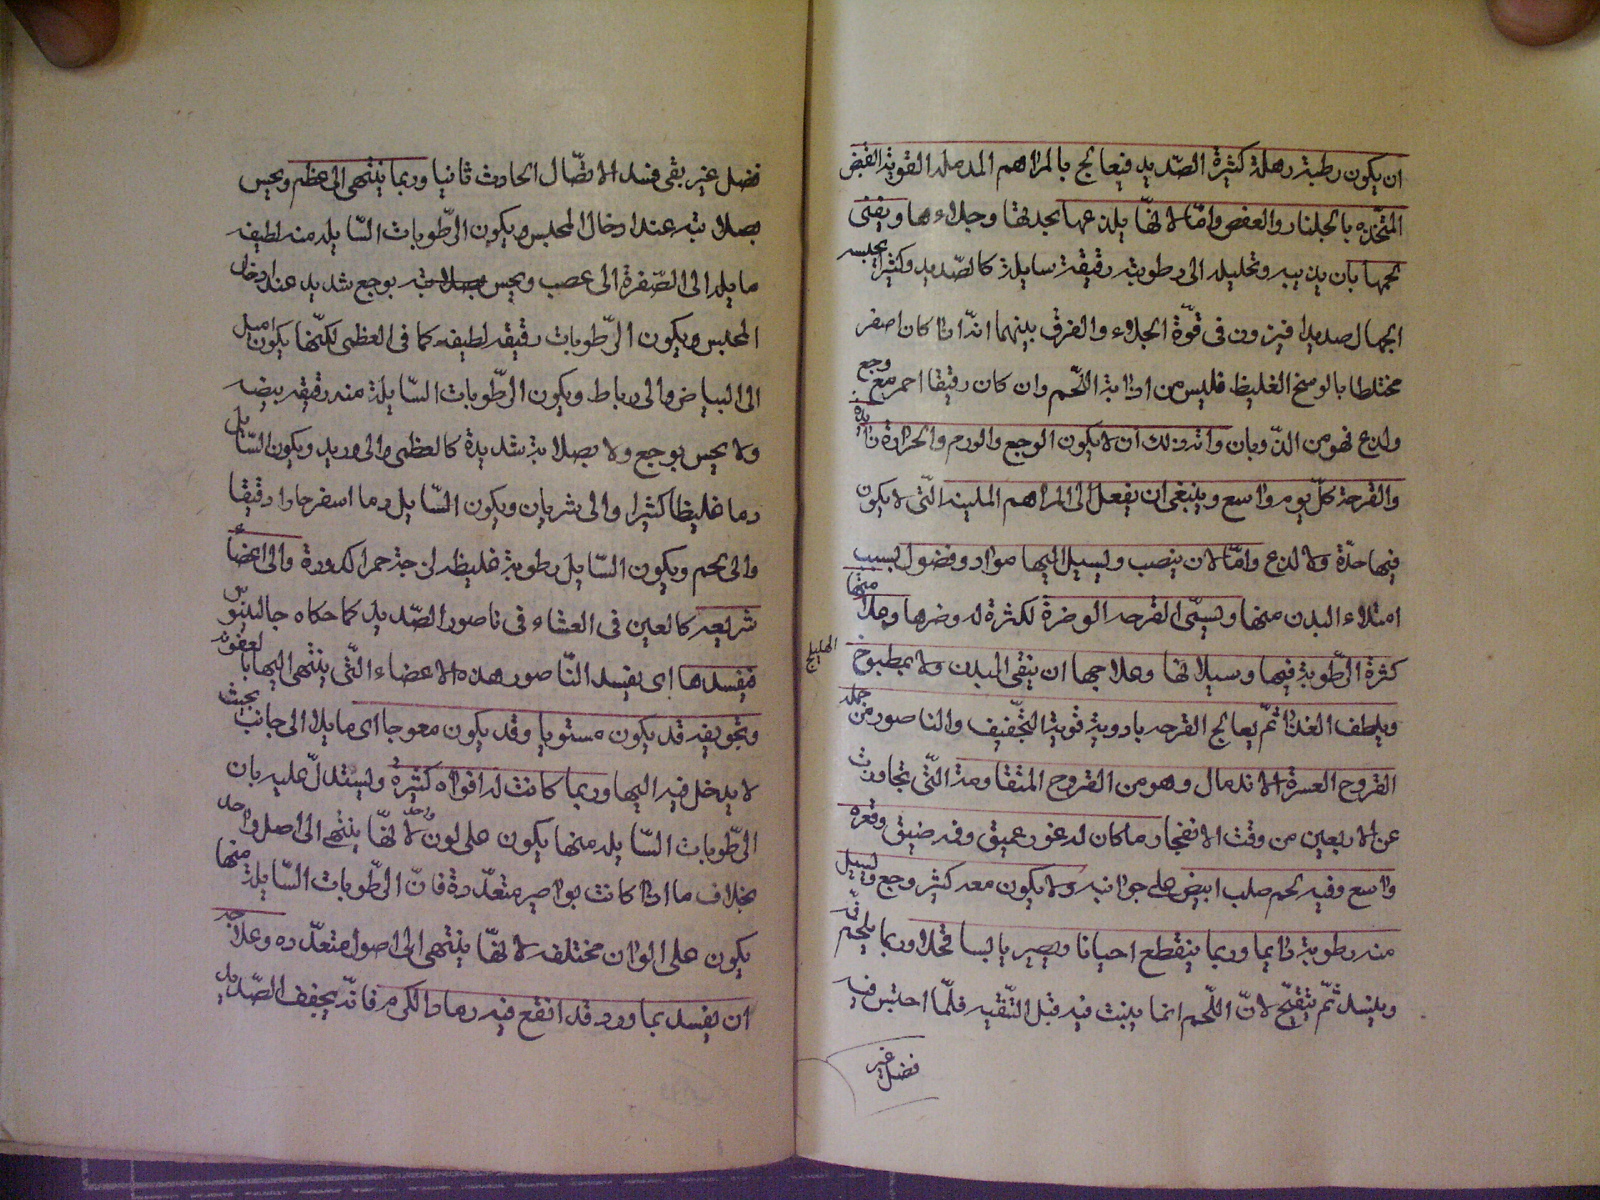 ان يكون رطبة رهلة كثيرة الصّديد فيعالج بالمراهم المدملة القوية القبض
المتّخذة بالجلنار والعفص وامّا لانّها يلذعها بحدتها وجلاءها ويفنى
لحمها بان يذيبه وتحليله الى رطوبة رقيقة سايلة كالصّديد وكثيرا يحسبه
الجهال صديدا فيزيدون فى قوّة الجلاء والفرق بينهما انّه اذا كان اصفر
مختلطا بالوسخ الغليظ فليس من اذابة اللّحم وان كان رقيقا احمر مع وجع
ولذع فهو من الذّوبان واثر ذلك ان لا يكون الوجع والورم والحرارة زايدة
والقرحة كلّ يوم واسع وينبغى ان يفعل الى المراهم الملينة الّتى لا يكون
فيها حدّة ولا لذع وامّا لان ينصب ويسيل اليها مواد وفضول بسبب
امتلاء البدن منها وتسمّى القرحه الوضرة لكثرة له وضرها وعلا منها
كثرة الرّطوبة فيها وسيلانها وعلاجها ان ينقى البدن ولا بمطبوخ
الهليلج
ويلطف الغذا ثمّ يعالج القرحه بادوية قوية التّجفيف والناصور من جمله
القروح العسرة الاندمال وهو من القروح المتقادمة الّتى تجاوزت
عن الاربعين من وقت الانفجار ما كان له غور عميق وفه ضيق وقعره
واسع وفيه لحم صلب ابيض على جوانبه ولا يكون معه كثير وجع ويسيل
منه رطوبة دايما وربما ينقطع احيانا ويصير يابسا قحلا وربما يلتحم فمه
وينسد ثمّ يتقيّح لانّ اللّحم انما ينبت فيه قبل التّنقيه فلمّا احتبس فيه
فضل غير
فضل غير بقى فسد الاتصّال الحادث ثانيا وربما ينتهى الى عظم ويحس
بصلابته عند ادخال المحبس ويكون الرّطوبات السّايله منه لطيفه
مايله الى الصّفرة الى عصب ويحس بصلابته بوجع شديد عند ادخال
المحبس ويكون الرّطوبات رقيقه لطيفه كما فى العظمى لكنّها يكون اميل
الى البياض والى رباط ويكون الرّطوبات السّايلة منه رقيقه بيضه
ولا يحس بوجع ولا بصلابة شديدة كالعظمى والى وريد ويكون السّايل
دما غليظا كثيرا والى شريان ويكون السّايل دما اسفر حادا رقيقا
والى لحم ويكون السّايل رطوبة غليظه لزجة حمرا كدورة والى اعضاء
شريفه كالعين فى العشاء فى ناصور الصّديد كما حكاه جالينوس
فيفسدها اى يفسد النّاصور هذه الاعضاء الّتى ينتهى اليها بالعفونه
وتجويفه قد يكون مستويا وقد يكون معوجا اى مايلا الى جانب بحيث
لا يدخل فيه اليها وربما كانت له افواه كثيرة ويستدلّ عليه بان
الرّطوبات السّايله منها يكون على لون واحد لانّها ينتهى الى اصل واحد
بخلاف ما اذا كانت بواصير متعدّدة فانّ الرّطوبات السّايلة منها
يكون على الوان مختلفه لانّها ينتهى الى اصول متعدّده وعلاجه
ان يفسد بما ورد قد انقع فيه رماد الكرم فانّه يجفف الصّديد